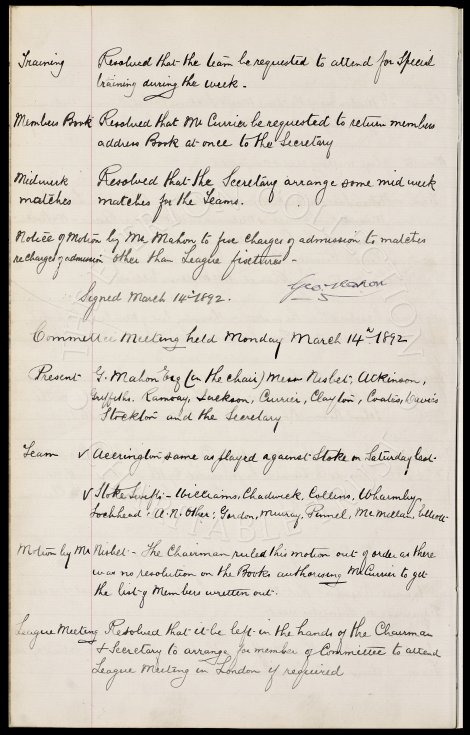 Training Resolved that the team be requested to attend for Special
training during the week.
Members Book Resolved that Mr Currier be requested to return members
address Book at once to the Secretary
Midweek Resolved that the Secretary arrange some mid week
matches matches for the Teams.
Notice of Motion by Mr Mahon to fix charges of admission to matches
re charges of admission other than League fixtures -
Geo Mahon
Signed March 14th 1892.
Committee Meeting held Monday March 14th 1892
Present G. Mahon Esq (in the chair) Messrs Nisbet, Atkinson,
Griffiths, Ramsay, Jackson, Currier, Clayton, Coates, Davies
Stockton and the Secretary
Team ✓ Accrington same as played against Stoke on Saturday last.
✓ Stoke Swifts:- Williams, Chadwick, Collins, Wharmby,
Lochhead. A. N. Other; Gordon, Murray, Pinnell, McMillan, Elliott
Motion by Mr Nisbet - The Chairman ruled this motion out of order as there
was no resolution on the Books authorising Mr Currier to get
the list of Members written out.
League Meeting Resolved that it be left in the hands of the Chairman
& Secretary to arrange for member of Committee to attend
League Meeting in London if required